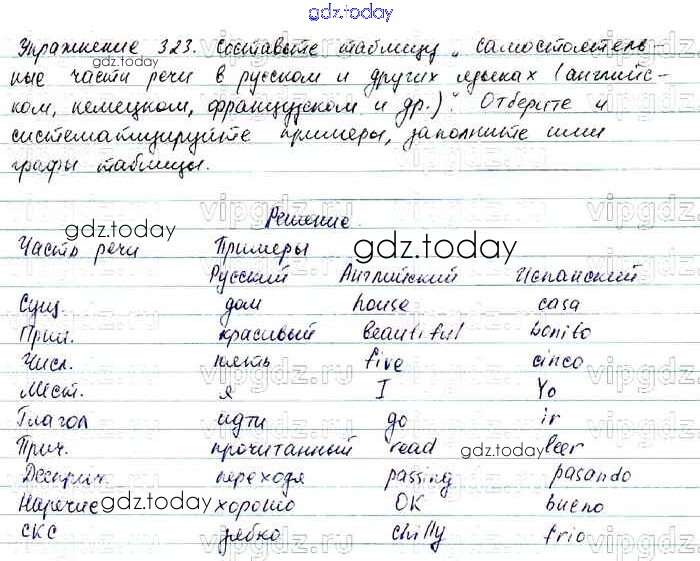 gdz.today
Упражнение 323. Составьте таблицу „Самостоятель-
ные части речи в русском и других языках (английс-
ком, немецком, французском и др.)“. Отберите и
систематизируйте примеры, заполните ими
графы таблицы.
Решение.
Часть речи Примеры
Русский Английский Испанский
Сущ. дом house casa
Прил. красивый beautiful bonito
Числ. пять five cinco
Мест. я I Yo
Глагол идти go ir
Прич. прочитанный read leer
Дееприч. переходя passing pasando
Наречие хорошо OK bueno
СКС зябко chilly frio